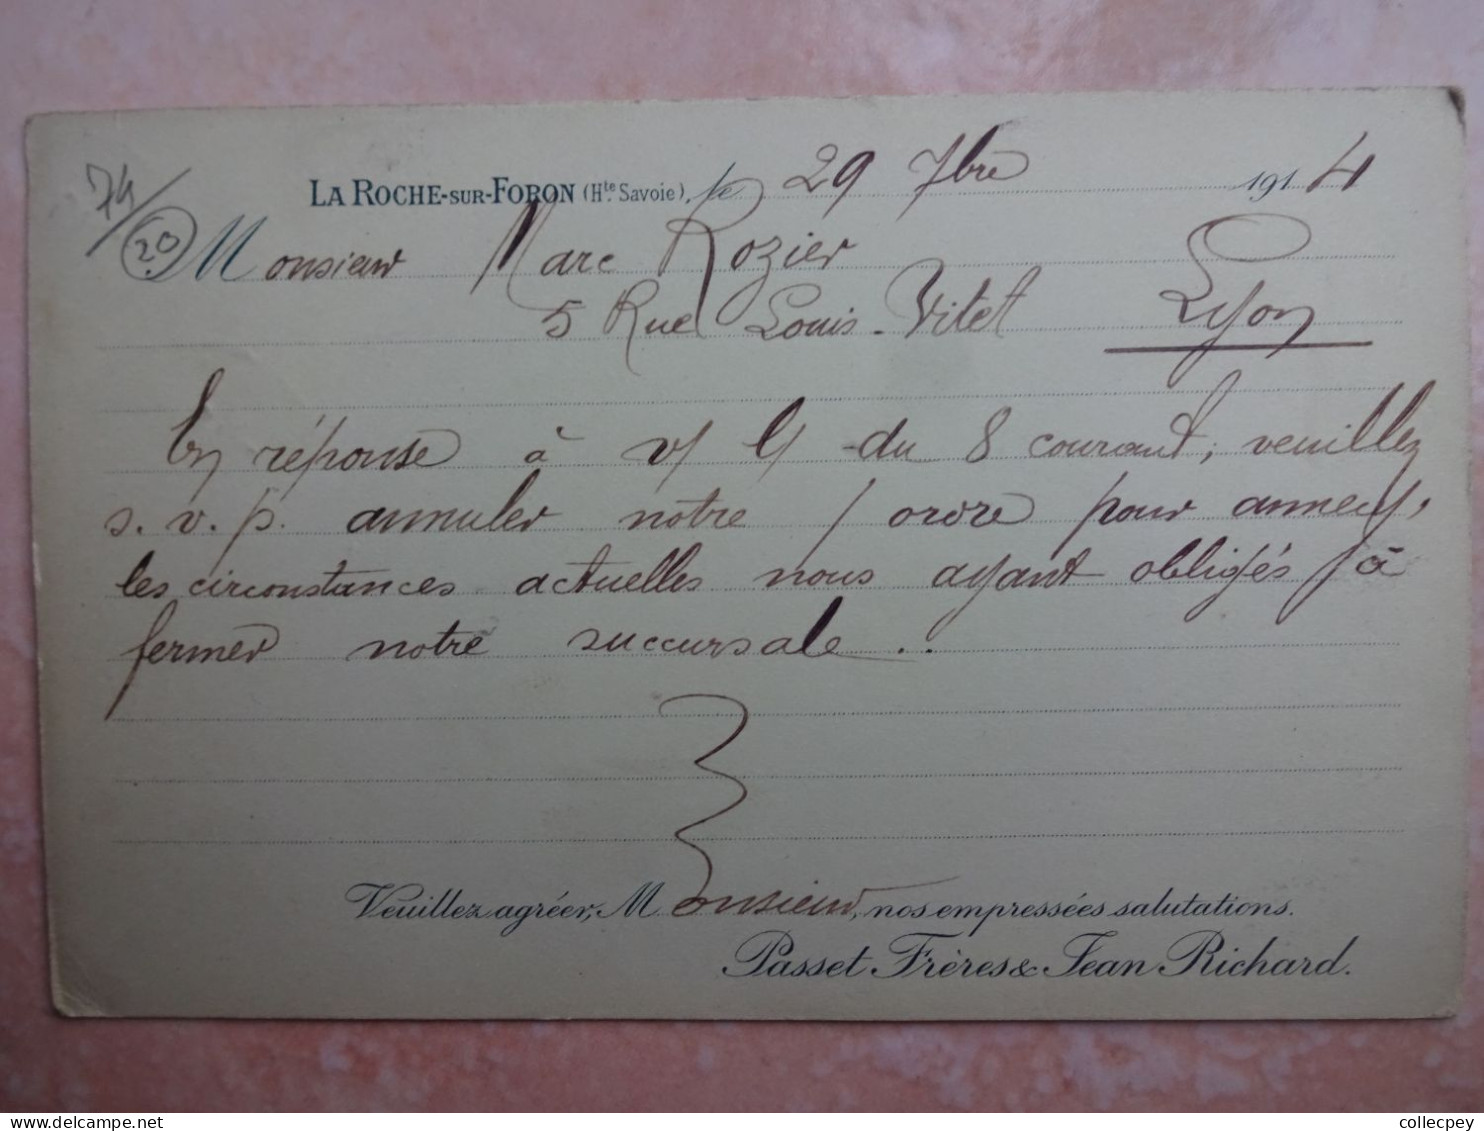 74
20
LA ROCHE-SUR-FORON (Hte Savoie), le 29 7bre 1914
Monsieur Marc Rozier
5 Rue Louis-Vitet Lyon
En réponse à v/ l/ du 8 courant, veuillez
s.v.p. annuler notre / ordre pour annecy,
les circonstances actuelles nous ayant obligés à
fermer notre succursale..
Veuillez agréer, Monsieur, nos empressées salutations.
Passet Frères & Jean Richard.
collecpey